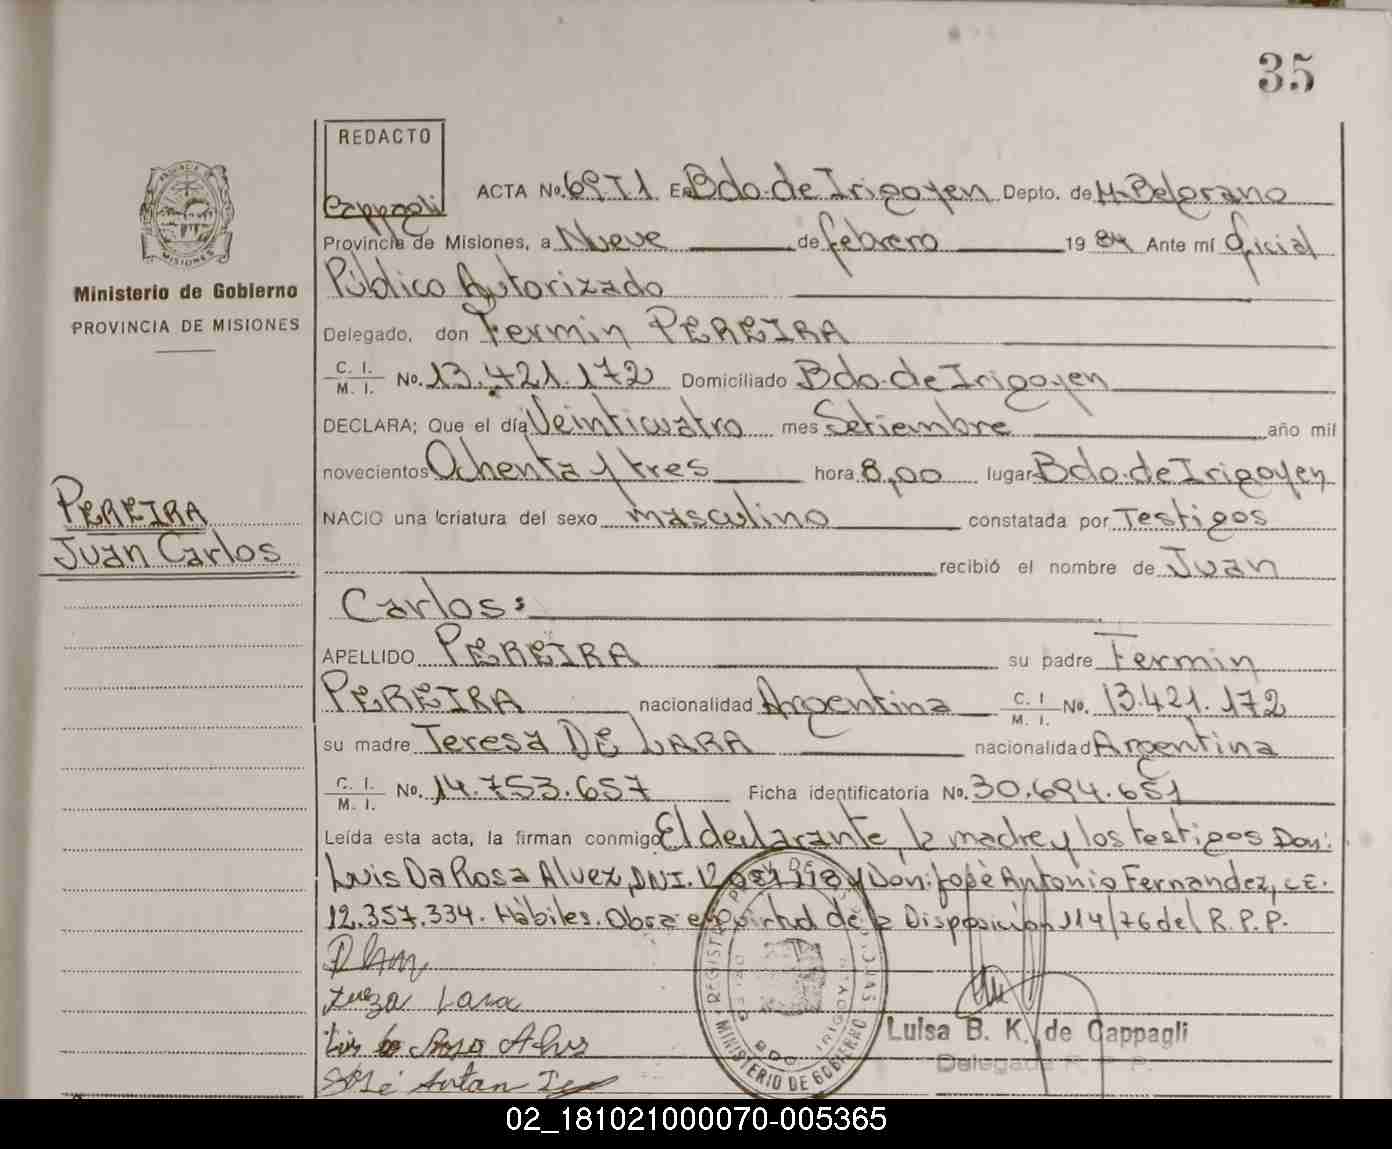 35
REDACTO
Cappagli
ACTA No. 69 T1 En Bdo. de Irigoyen Depto. de M. Belgrano
Provincia de Misiones, a Nueve de febrero 1984 Ante mí Oficial
Público Autorizado
Ministerio de Gobierno
PROVINCIA DE MISIONES
Delegado, don Fermin PEREIRA
C. I.
M. I. No. 13.421.172 Domiciliado Bdo. de Irigoyen
DECLARA; Que el día Veinticuatro mes Setiembre año mil
novecientos Ochenta y tres hora 8,00 lugar Bdo. de Irigoyen
PEREIRA
Juan Carlos
NACIO una criatura del sexo masculino constatada por Testigos
recibió el nombre de Juan
Carlos:
APELLIDO PEREIRA su padre Fermin
PEREIRA nacionalidad Argentina C. I. M. I. No. 13.421.172
su madre Teresa DE LARA nacionalidad Argentina
C. I.
M. I. No. 14.753.657 Ficha identificatoria No. 30.694.651
Leída esta acta, la firman conmigo El declarante, la madre y los testigos Don:
Luis Da Rosa Alvez, DNI. y Don: José Antonio Fernandez, C.E.
12.357.334. Hábiles. Obra en virtud de la Disposición 114/76 del R.P.P.
Lara
Luisa B. K. de Cappagli
Delegada R. P. P.
MINISTERIO DE GOBIERNO
BDO. IRIGOYEN
02_181021000070-005365